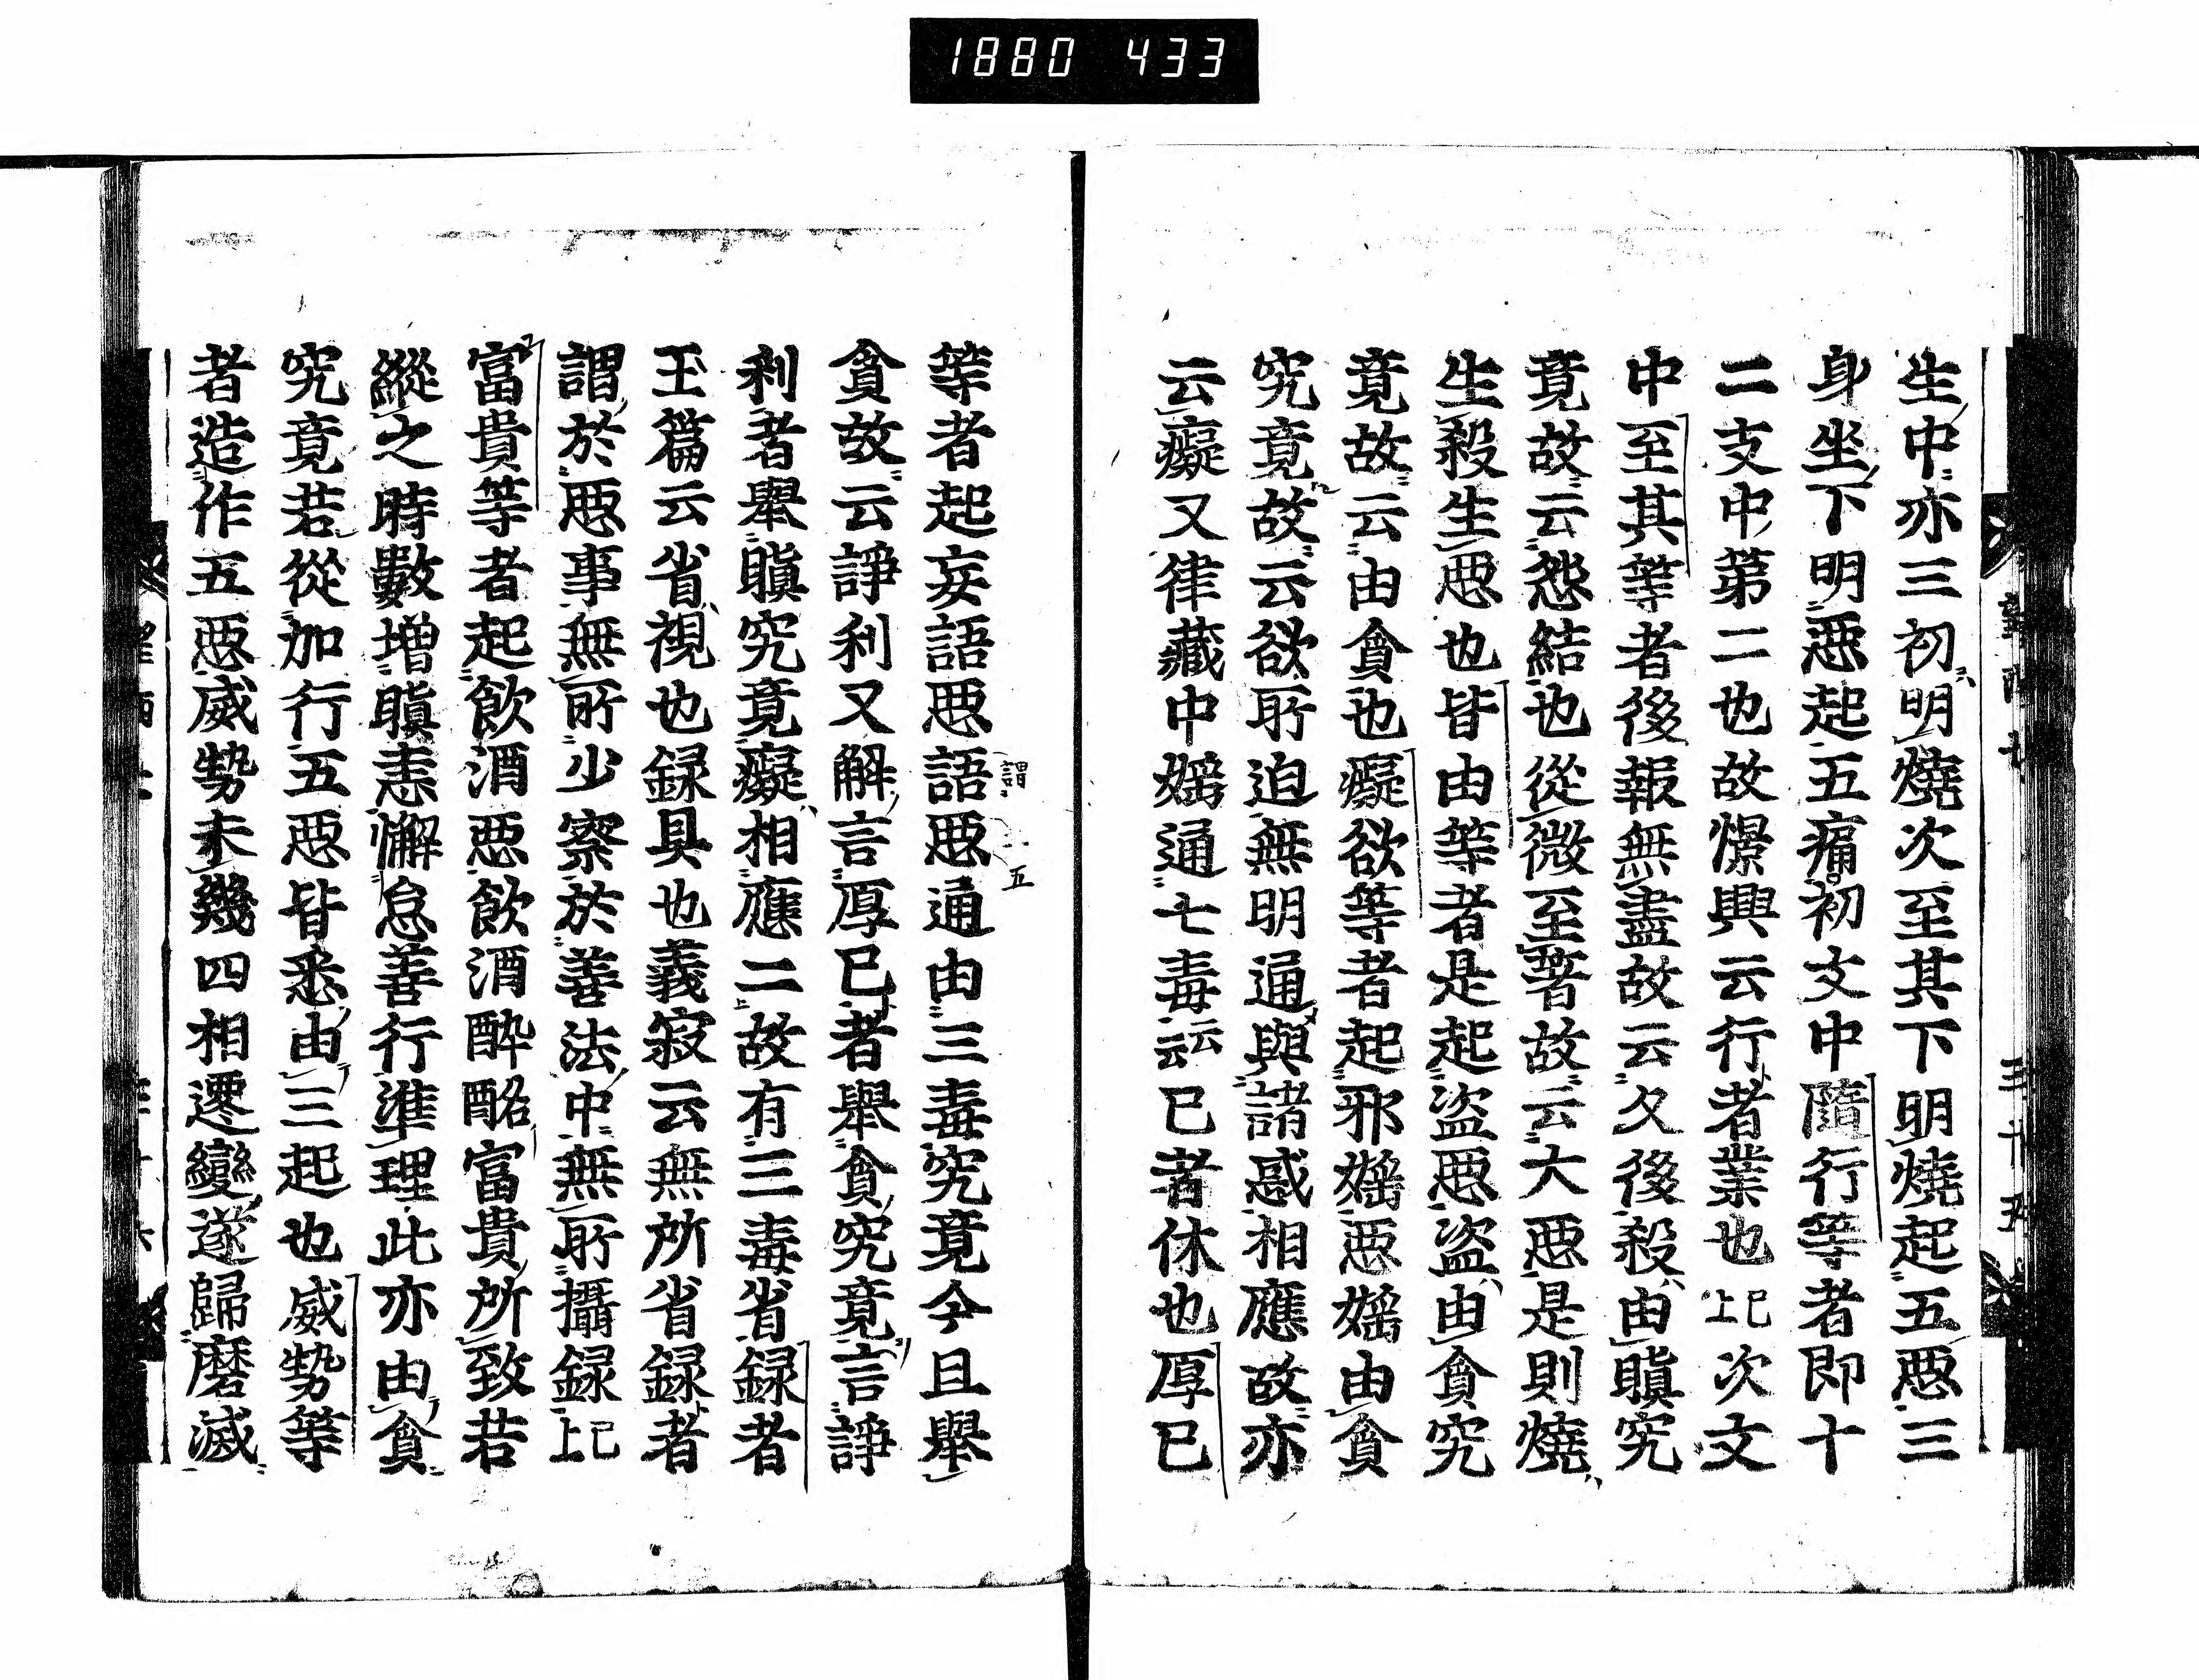 1880 433
生中亦三初明燒次至其下明燒起五惡三
身坐下明惡起五痛初文中隨行等者即十
二支中第二也故憬興云行者業也已上次文
中至其等者後報無盡故云久後殺由瞋究
竟故云怨結也從微至著故云大惡是則燒
生殺生惡也皆由等者是起盜惡盜由貪究
竟故云由貪也癡欲等者起邪婬惡婬由貪
究竟故云欲所迫無明通與諸惑相應故亦
云癡又律藏中婬通七毒云云已者休也厚已
等者起妄語惡語惡通由三毒究竟今且舉
謂 五
貪故云諍利又解言厚已者舉貪究竟言諍
利者舉瞋究竟癡相應二故有三毒省録者
玉篇云省視也録具也義寂云無所省録者
謂於惡事無所少察於善法中無所攝録已上
富貴等者起飲酒惡飲酒酔酩富貴所致若
縱之時數增瞋恚懈怠善行準理此亦由貪
究竟若從加行五惡皆悉由三起也威勢等
者造作五惡威勢未幾四相遷變遂歸磨滅
三十五